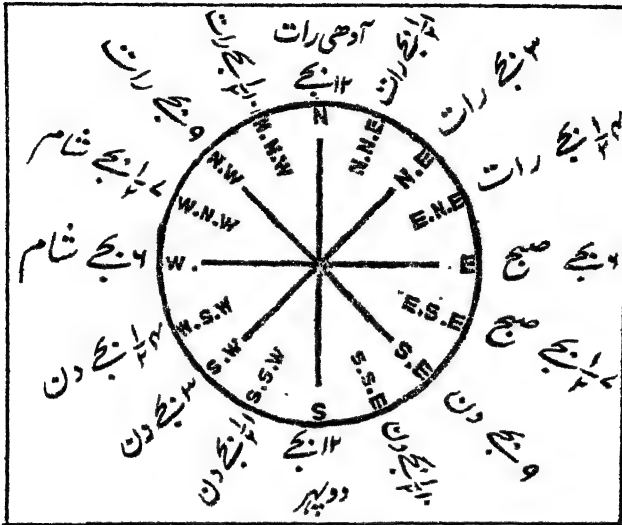 آدھی رات
۱۲ بجے
N
۱ ۱/۲ بجے رات
N.N.E
۳ بجے رات
N.E
۴ ۱/۲ بجے رات
E.N.E
۶ بجے صبح
E
۷ ۱/۲ بجے صبح
E.S.E
۹ بجے دن
S.E
۱۰ ۱/۲ بجے دن
S.S.E
S
۱۲ بجے
دوپہر
۱ ۱/۲ بجے دن
S.S.W
۳ بجے دن
S.W
۴ ۱/۲ بجے دن
W.S.W
۶ بجے شام
W.
۷ ۱/۲ بجے شام
W.N.W
۹ بجے رات
N.W
۱۰ ۱/۲ بجے رات
N.N.W